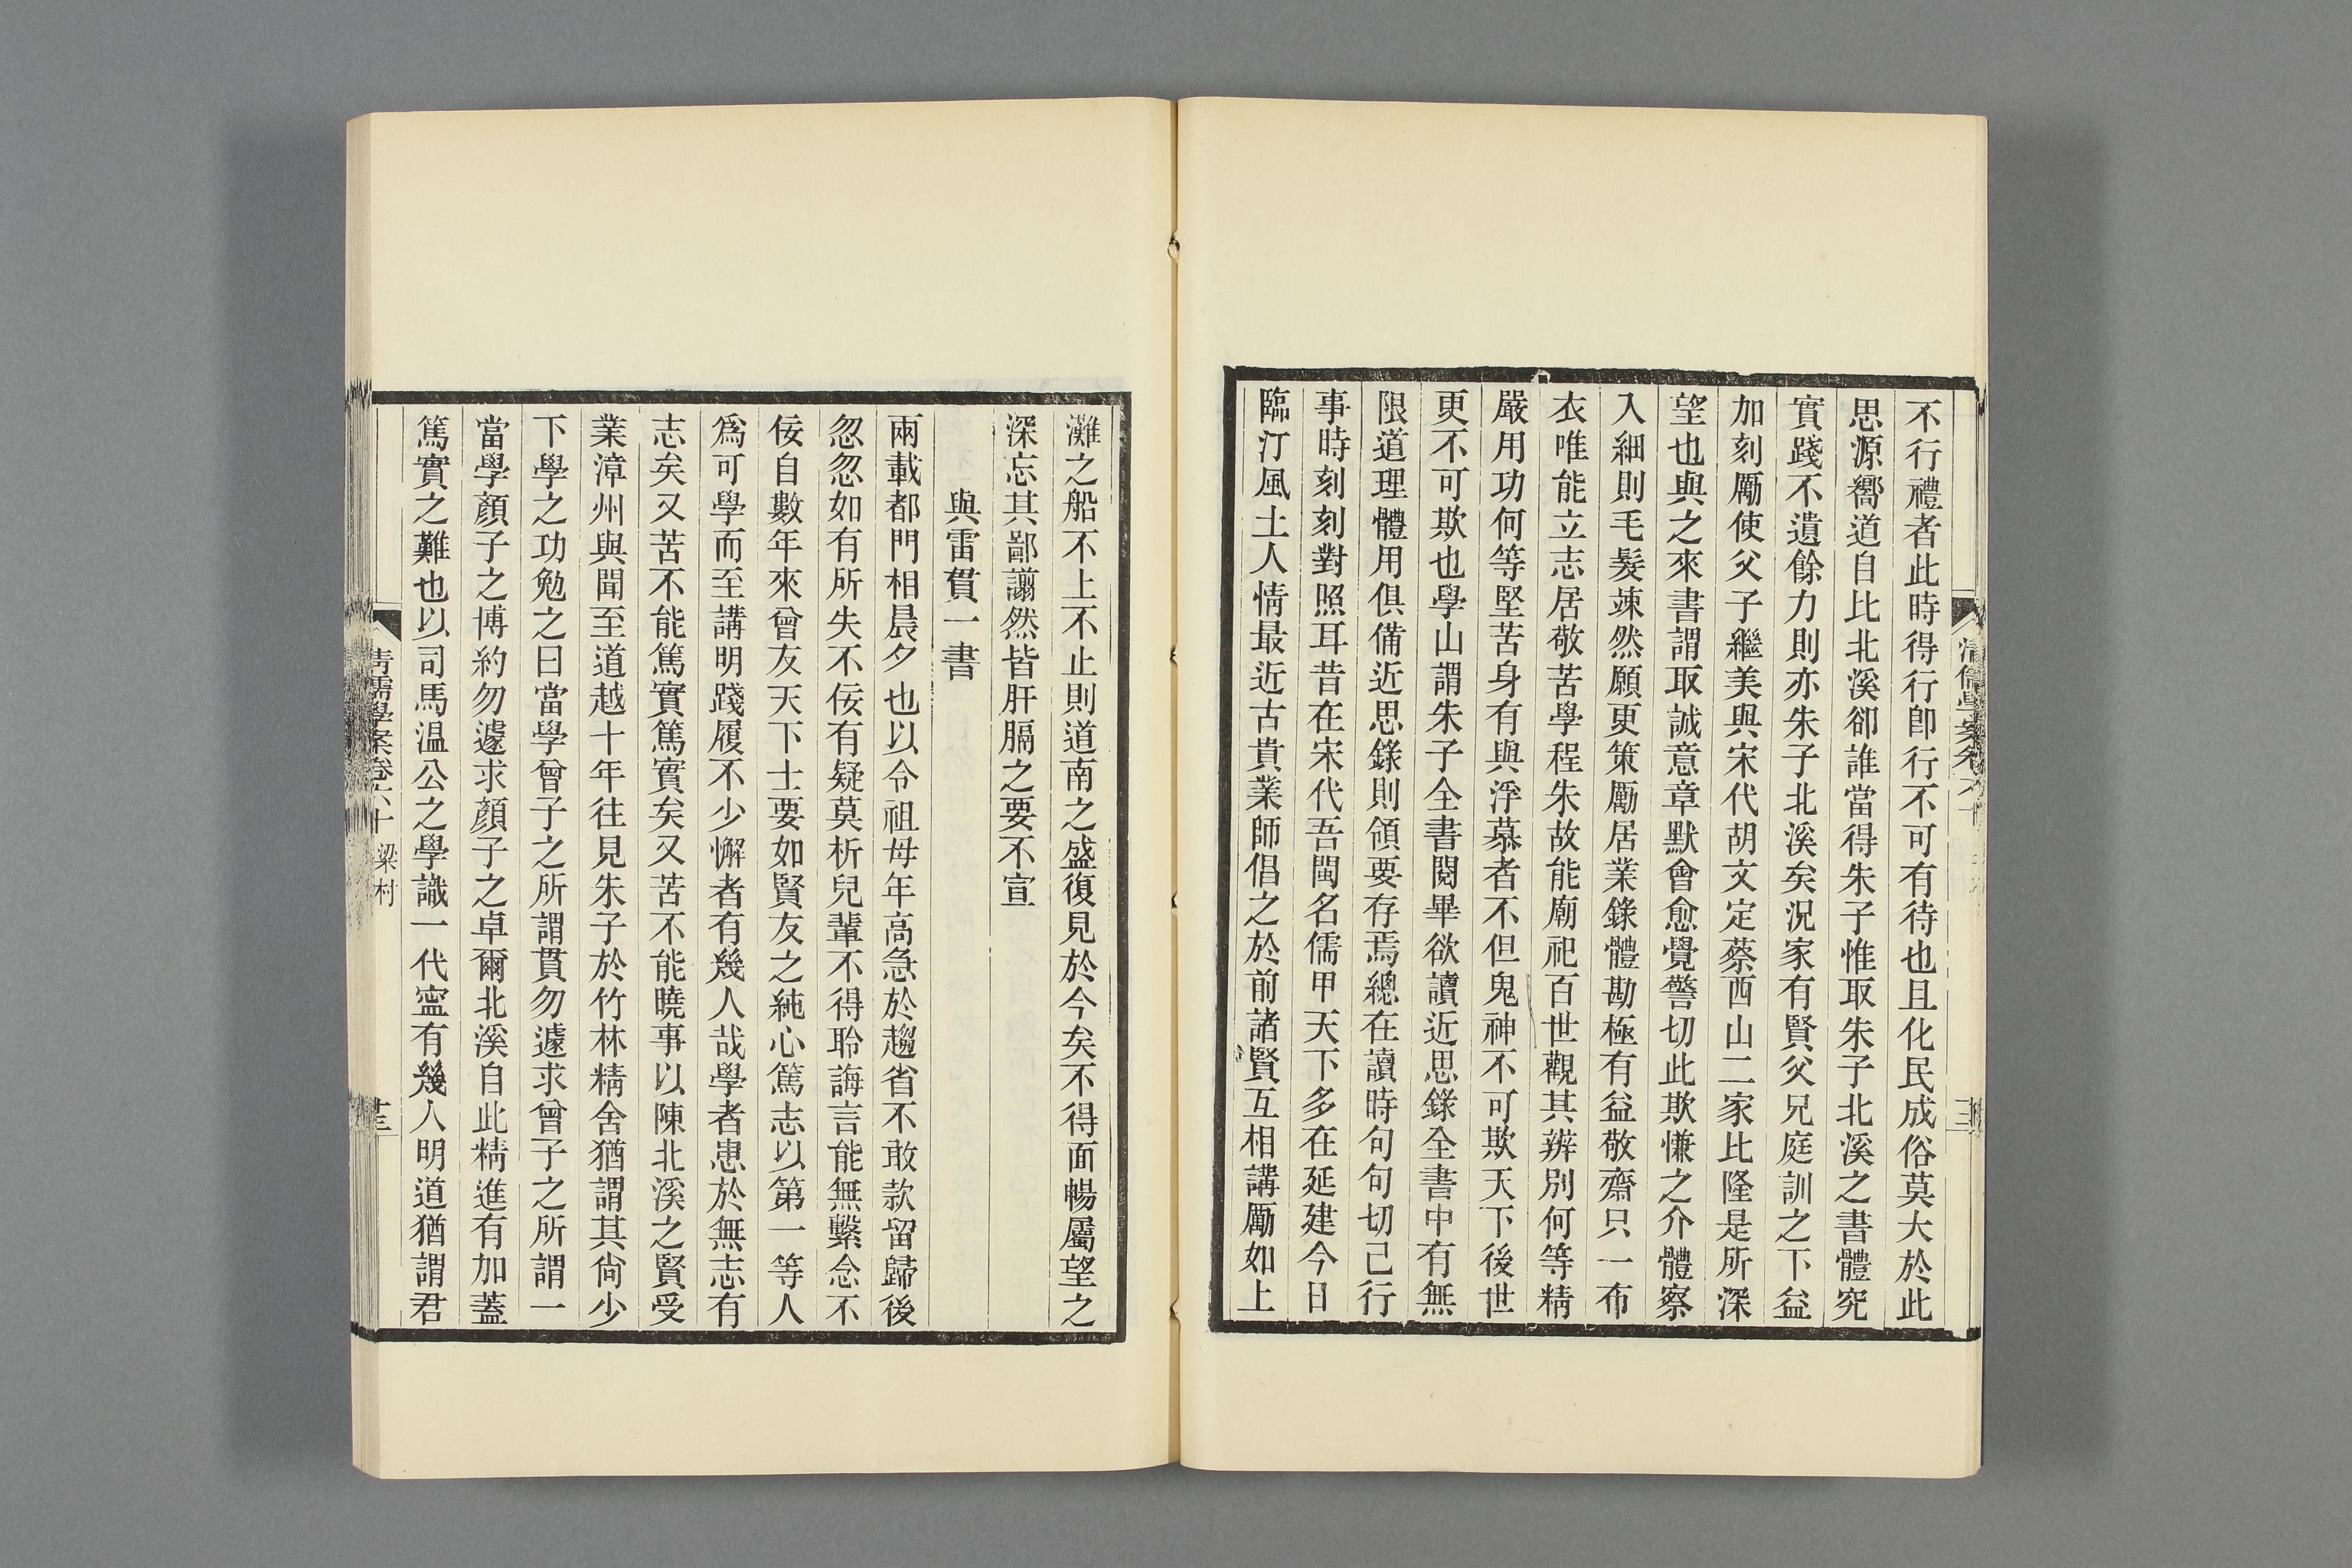 不行禮者此時得行卽行不可有待也且化民成俗莫大於此
思源嚮道自比北溪卻誰當得朱子惟取朱子北溪之書體究
實踐不遺餘力則亦朱子北溪矣況家有賢父兄庭訓之下益
加刻勵使父子繼美與宋代胡文定蔡西山二家比隆是所深
望也與之來書謂取誠意章默會愈覺警切此欺慊之介體察
入細則毛髮竦然願更策勵居業錄體勘極有益敬齋只一布
衣唯能立志居敬苦學程朱故能廟祀百世觀其辨別何等精
嚴用功何等堅苦身有與浮慕者不但鬼神不可欺天下後世
更不可欺也學山謂朱子全書閱畢欲讀近思錄全書中有無
限道理體用俱備近思錄則領要存焉總在讀時句句切己行
事時刻刻對照耳昔在宋代吾閩名儒甲天下多在延建今日
臨汀風土人情最近古貴業師倡之於前諸賢互相講勵如上
灘之船不上不止則道南之盛復見於今矣不得面暢屬望之
深忘其鄙譾然皆肝膈之要不宣
與雷貫一書
兩載都門相晨夕也以令祖母年高急於趨省不敢款留歸後
忽忽如有所失不佞有疑莫析兒輩不得聆誨言能無繫念不
佞自數年來曾友天下士要如賢友之純心篤志以第一等人
爲可學而至講明踐履不少懈者有幾人哉學者患於無志有
志矣又苦不能篤實篤實矣又苦不能曉事以陳北溪之賢受
業漳州與聞至道越十年往見朱子於竹林精舍猶謂其尙少
下學之功勉之曰當學曾子之所謂貫勿遽求曾子之所謂一
當學顏子之博約勿遽求顏子之卓爾北溪自此精進有加蓋
篤實之難也以司馬溫公之學識一代寍有幾人明道猶謂君
清儒學案卷六十 梁村
十三